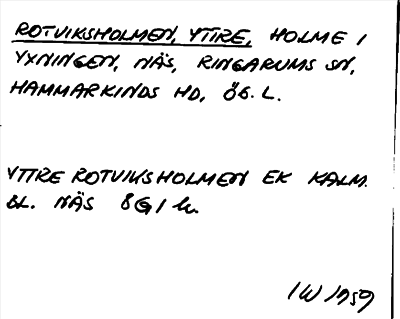 ROTVIKSHOLMEN, YTTRE, HOLME I
YXNINGEN, NÄS, RINGARUMS SN,
HAMMARKINDS HD, ÖG. L.
YTTRE ROTVIKSHOLMEN EK KALM.
BL. NÄS 8G1h.
IW 1959